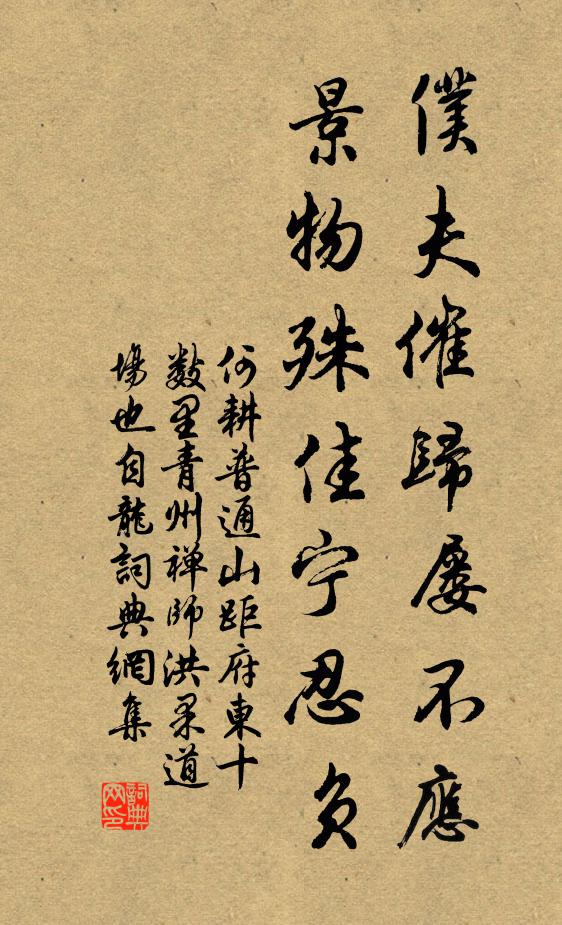 僕夫催歸屡不應
景物殊佳宁忍负
何耕普通山距府東十
数里青州禅師洪杲道
場也自龍詞典網集
詞典网印